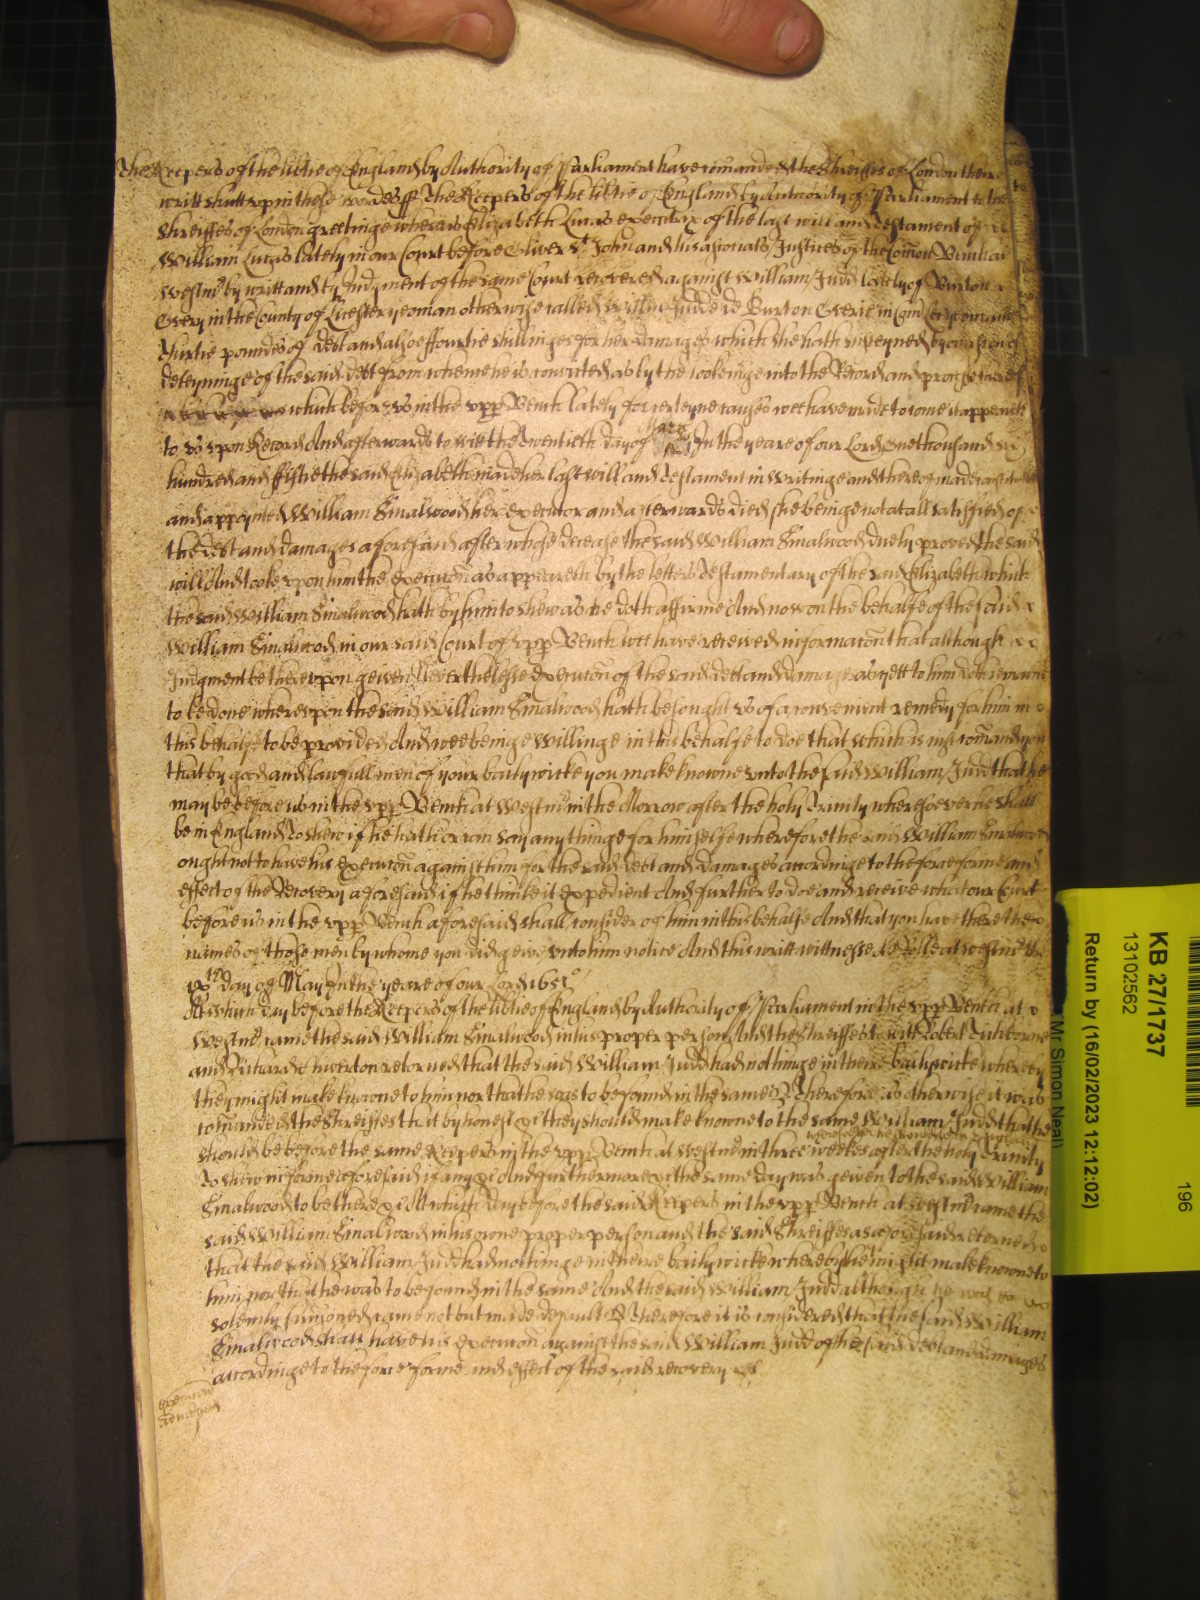 The Keepers of the lib'tie of England by Authority of Parliament have com'anded the Shreiffes of London there
writt shutt upp in these wordes ss The Keepers of the lib'tie of England by Authority of Parliament to the
Shreiffes of London greetinge whereas Elizabeth Lucas executrix of the last will and testament of
William Lucas lately in our Court before Oliver St John and his asociats Justices of the Com'on Bench at
Westm' by writt and by Judgment of the same Court recovered against William Judd lately of Burton
Overy in the County of Leicester yeoman otherwise called Willm' Judde de Burton Overie in Com'
pounds of debt and alsoe ffourtie shillinges for her damages which she hath susteyned by occasion of
deteyninge of the said debt from whence he is convicted as by the lookeinge into the Record and processe thereof
which before us in the upp' Bench lately for certeyne causes wee have made to come it appeareth
to us upon Record And afterwards to witt the twentieth day of In the yeare of our Lord One thousand six
hundred and ffiftie the said Elizabeth made her last will and testament in writinge and thereof made
and appointed William Smalwood her executor and afterwards died she beinge not at all satisfied of
the debt and damages aforesaid after whose decease the said William Smalwood duely proved the said
will And tooke upon him the execuc'on as appeareth by the letters testamentary of the said Elizabeth which
the said William Smalwood hath by him to shew as he doth affirme And now on the behalfe of the said
William Smalwood in our said Court of upp' Bench wee have received informac'on that although
Judgment be thereupon geiven Neverthelesse execuc'on of the said debt and damages as yett to him doth remaine
to be done whereupon the said William Smalwood hath besought us of a convenient remedy for him in
this behalfe to be provided And wee beinge willinge in this behalfe to doe that which is just com'and you
that by good and lawfull men of your bailywicke you make knowne unto the said William Judd that he
may be before us in the upp' Bench at Westm' in the Morrow after the holy Trinity wheresoever he shall
be in England To shew if he hath or can say any thinge for himselfe wherefore the said William Smalwood
ought not to have his execuc'on against him for the said debt and damages accordinge to the force forme and
effect of the Recovery aforesaid if he thinke it expedient And further to doe and receive what our Court
before us in the upp' Bench aforesaid shall consider of him in this behalfe And that you have there the
names of those men by whome you did geive unto him notice And this writt wittnesse H: Rolle at Westm' the
day of May In the yeare of our Lord 1651
At which day before the Keepers of the lib'tie of England by Authority of Parliament in the upp' Bench at
Westm' came the said William Smalwood in his proper person And the Shreiffes to witt Robert Tichborne
and Richard Chiverton retorned that the said William Judd had nothinge in there bailywicke whereby
they might make knowne to him nor that he was to be found in the same Therefore as otherwise it was
com'anded the Shreiffes that by honest &c they should make knowne to the same William Judd that he
should be before the same Keepers in the upp' Bench at Westm' in three weekes after the holy Trinity
To shew in forme aforesaid if any &c And furthermore &c the same day was geiven to the said William
Smalwood to be there &c At which day before the said Keepers in the upp' Bench at Westm' came the
said William Smalwood in his owne proper person and the said Shreiffes as aforesaid retorned
that the said William Judd had nothinge in there bailywicke whereby they might make knowne to
him nor that he was to be found in the same And the said William Judd although he was
solemly sum'oned came not but made default Therefore it is considered that the said William
Smalwood shall have his execuc'on against the said William Judd of the said debt and damages
accordinge to the force forme and effect of the said recovery &c
KB 27/1737
13102562
Return by (16/02/2023 12:12:02)
Mr Simon Neal)
196